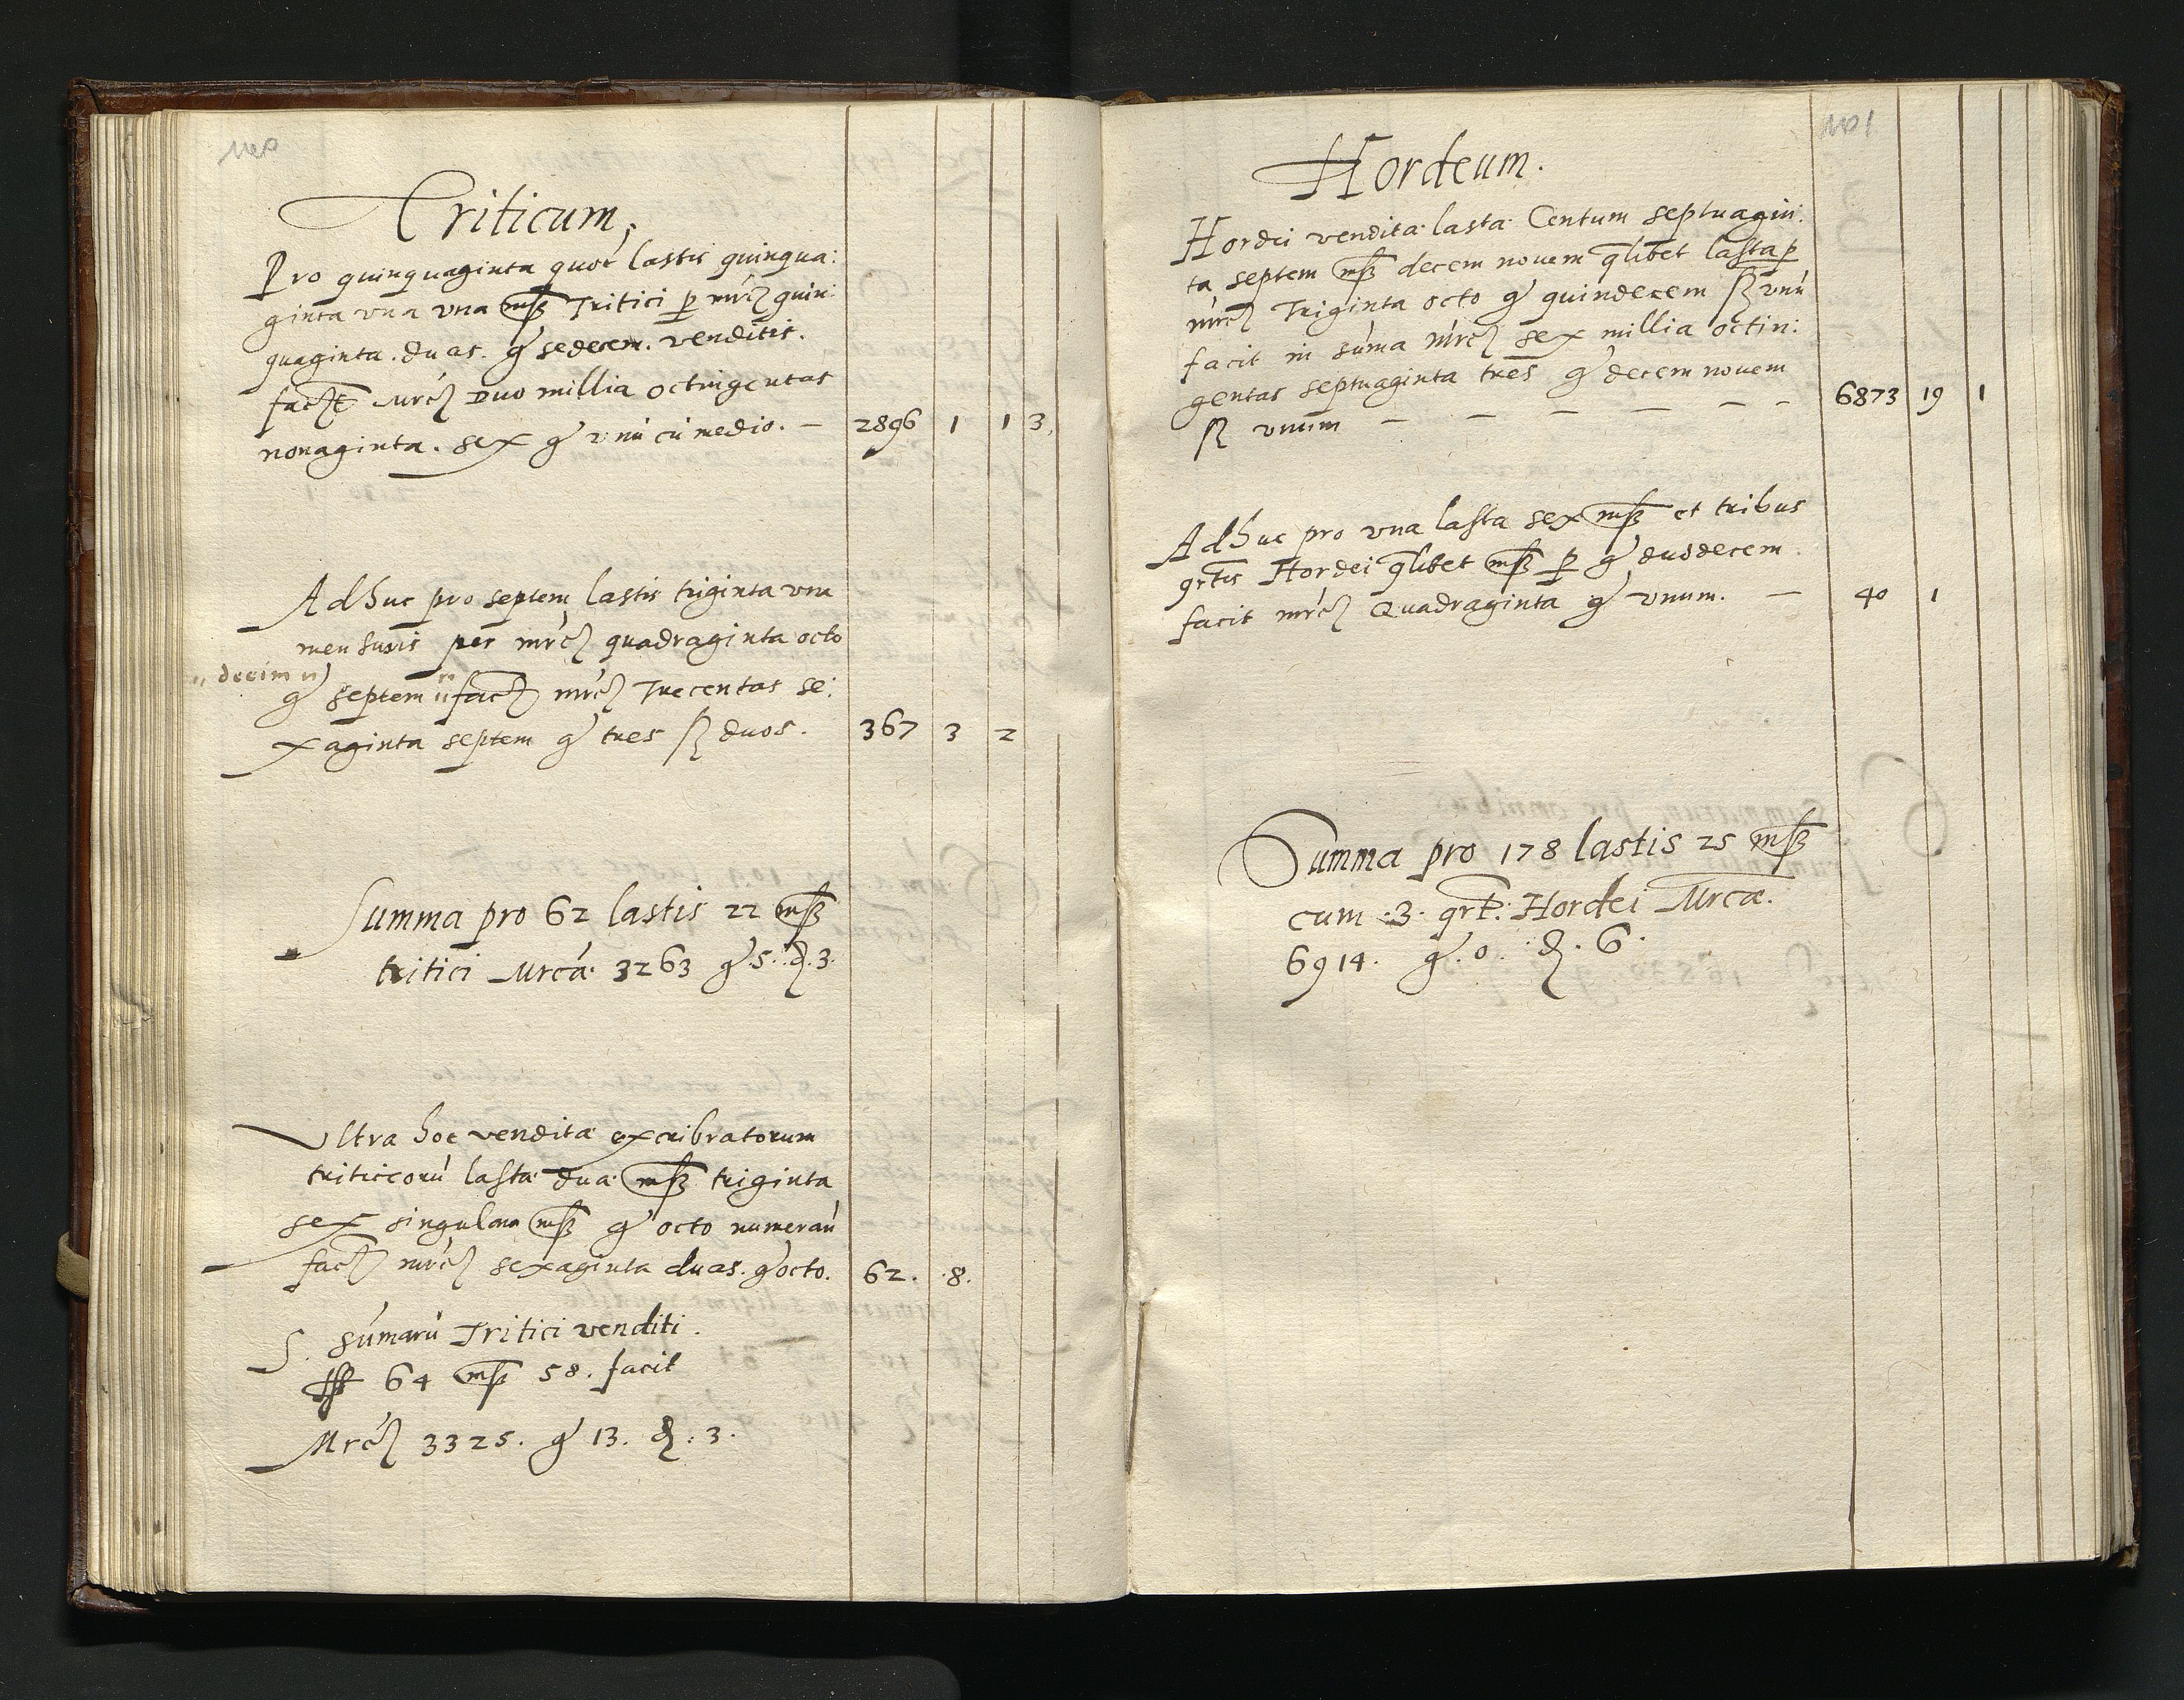 Triticum.
Pro quinquaginta quot lastis quinqua:
ginta vna vna mß Tritici p mrc quin:
quaginta. duas. g sedecem. venditis.
fact Mrc Duo millia octingentas
nonaginta. sex g vnu cu medio. — 2896 1 1 3
Adhuc pro septem lastis triginta vna
mensuris per mrc quadraginta octo
"decim"
g septem " fact mrc Trecentas se:
xaginta septem g tres ß duos. 367 3 2
Summa pro 62 lastis 22 mß
tritici Mrca 3263 g. 5. d. 3.
Vltra hoc vendita excribratorum
triticoru lasta dua mß triginta
sex singulam mß g octo numerau
fact mrc sexaginta duas. g octo. 62. .8.
S. sumaru Tritici venditi.
64 mß 58. facit
Mrc 3325. g 13. d. 3.
Hordeum.
Hordei vendita lasta Centum septuagin:
ta septem mß decem novem qlibet lasta p
mrc Triginta octo g quindecem ß vnu
facit in suma mrc sex millia octin:
gentas septuaginta tres g decem novem
ß vnum — — — — — - 6873 19 1
Adhuc pro vna lasta sex mß et tribus
grtis Hordei qlibet mß p g duodecem
facit mrc Quadraginta g vnum. — 40 1
Summa pro 178 lastis 25 mß
cum .3. grt: Hordei Mrca.
6914. g. 0. d. 6.